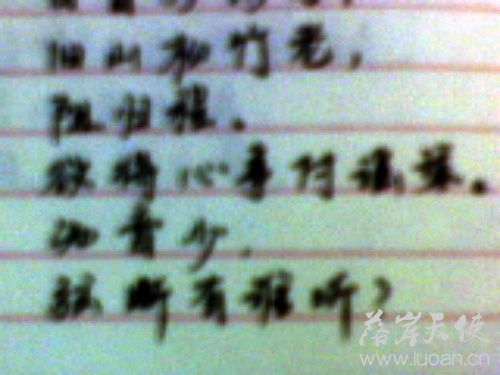 旧山松竹老,
阻归程。
欲将心事付瑶琴。
知音少,
弦断有谁听?
落岸天使
www.luoan.cn